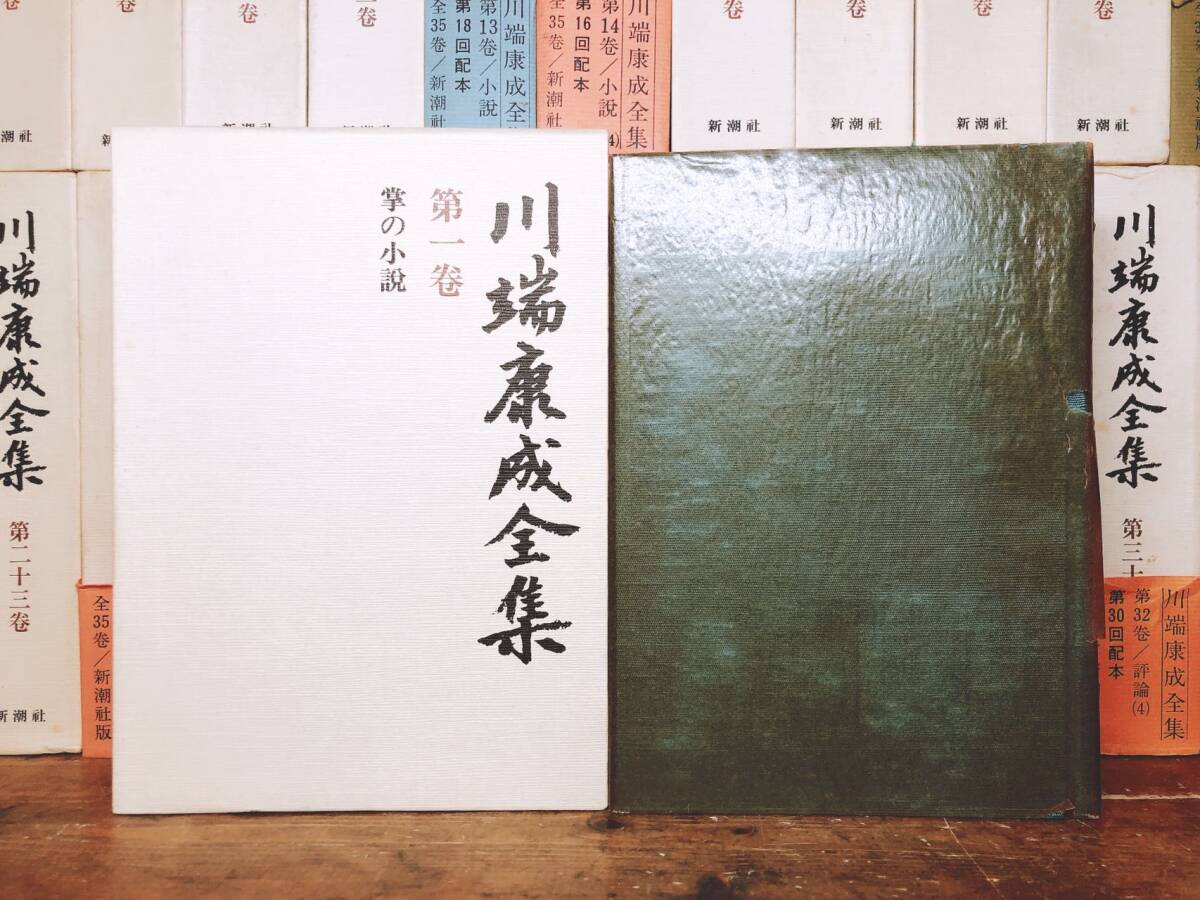 川端康成全集
第一卷
掌の小説
卷
卷
卷
一卷
卷
卷
卷
卷
新潮社
新潮社
新潮社
新潮社
新潮社
新潮社
川端康成全集
第13巻/小説
第18回配本
全35巻/新潮社
川端康成全集
第14巻/小説
(4)
第16回配本
全35巻/新潮社
川端康成全集
第二十三卷
新潮社
全35巻/新潮社版
川端康成全集
第三十
川端康成全集
第32巻/評論(4)
第30回配本